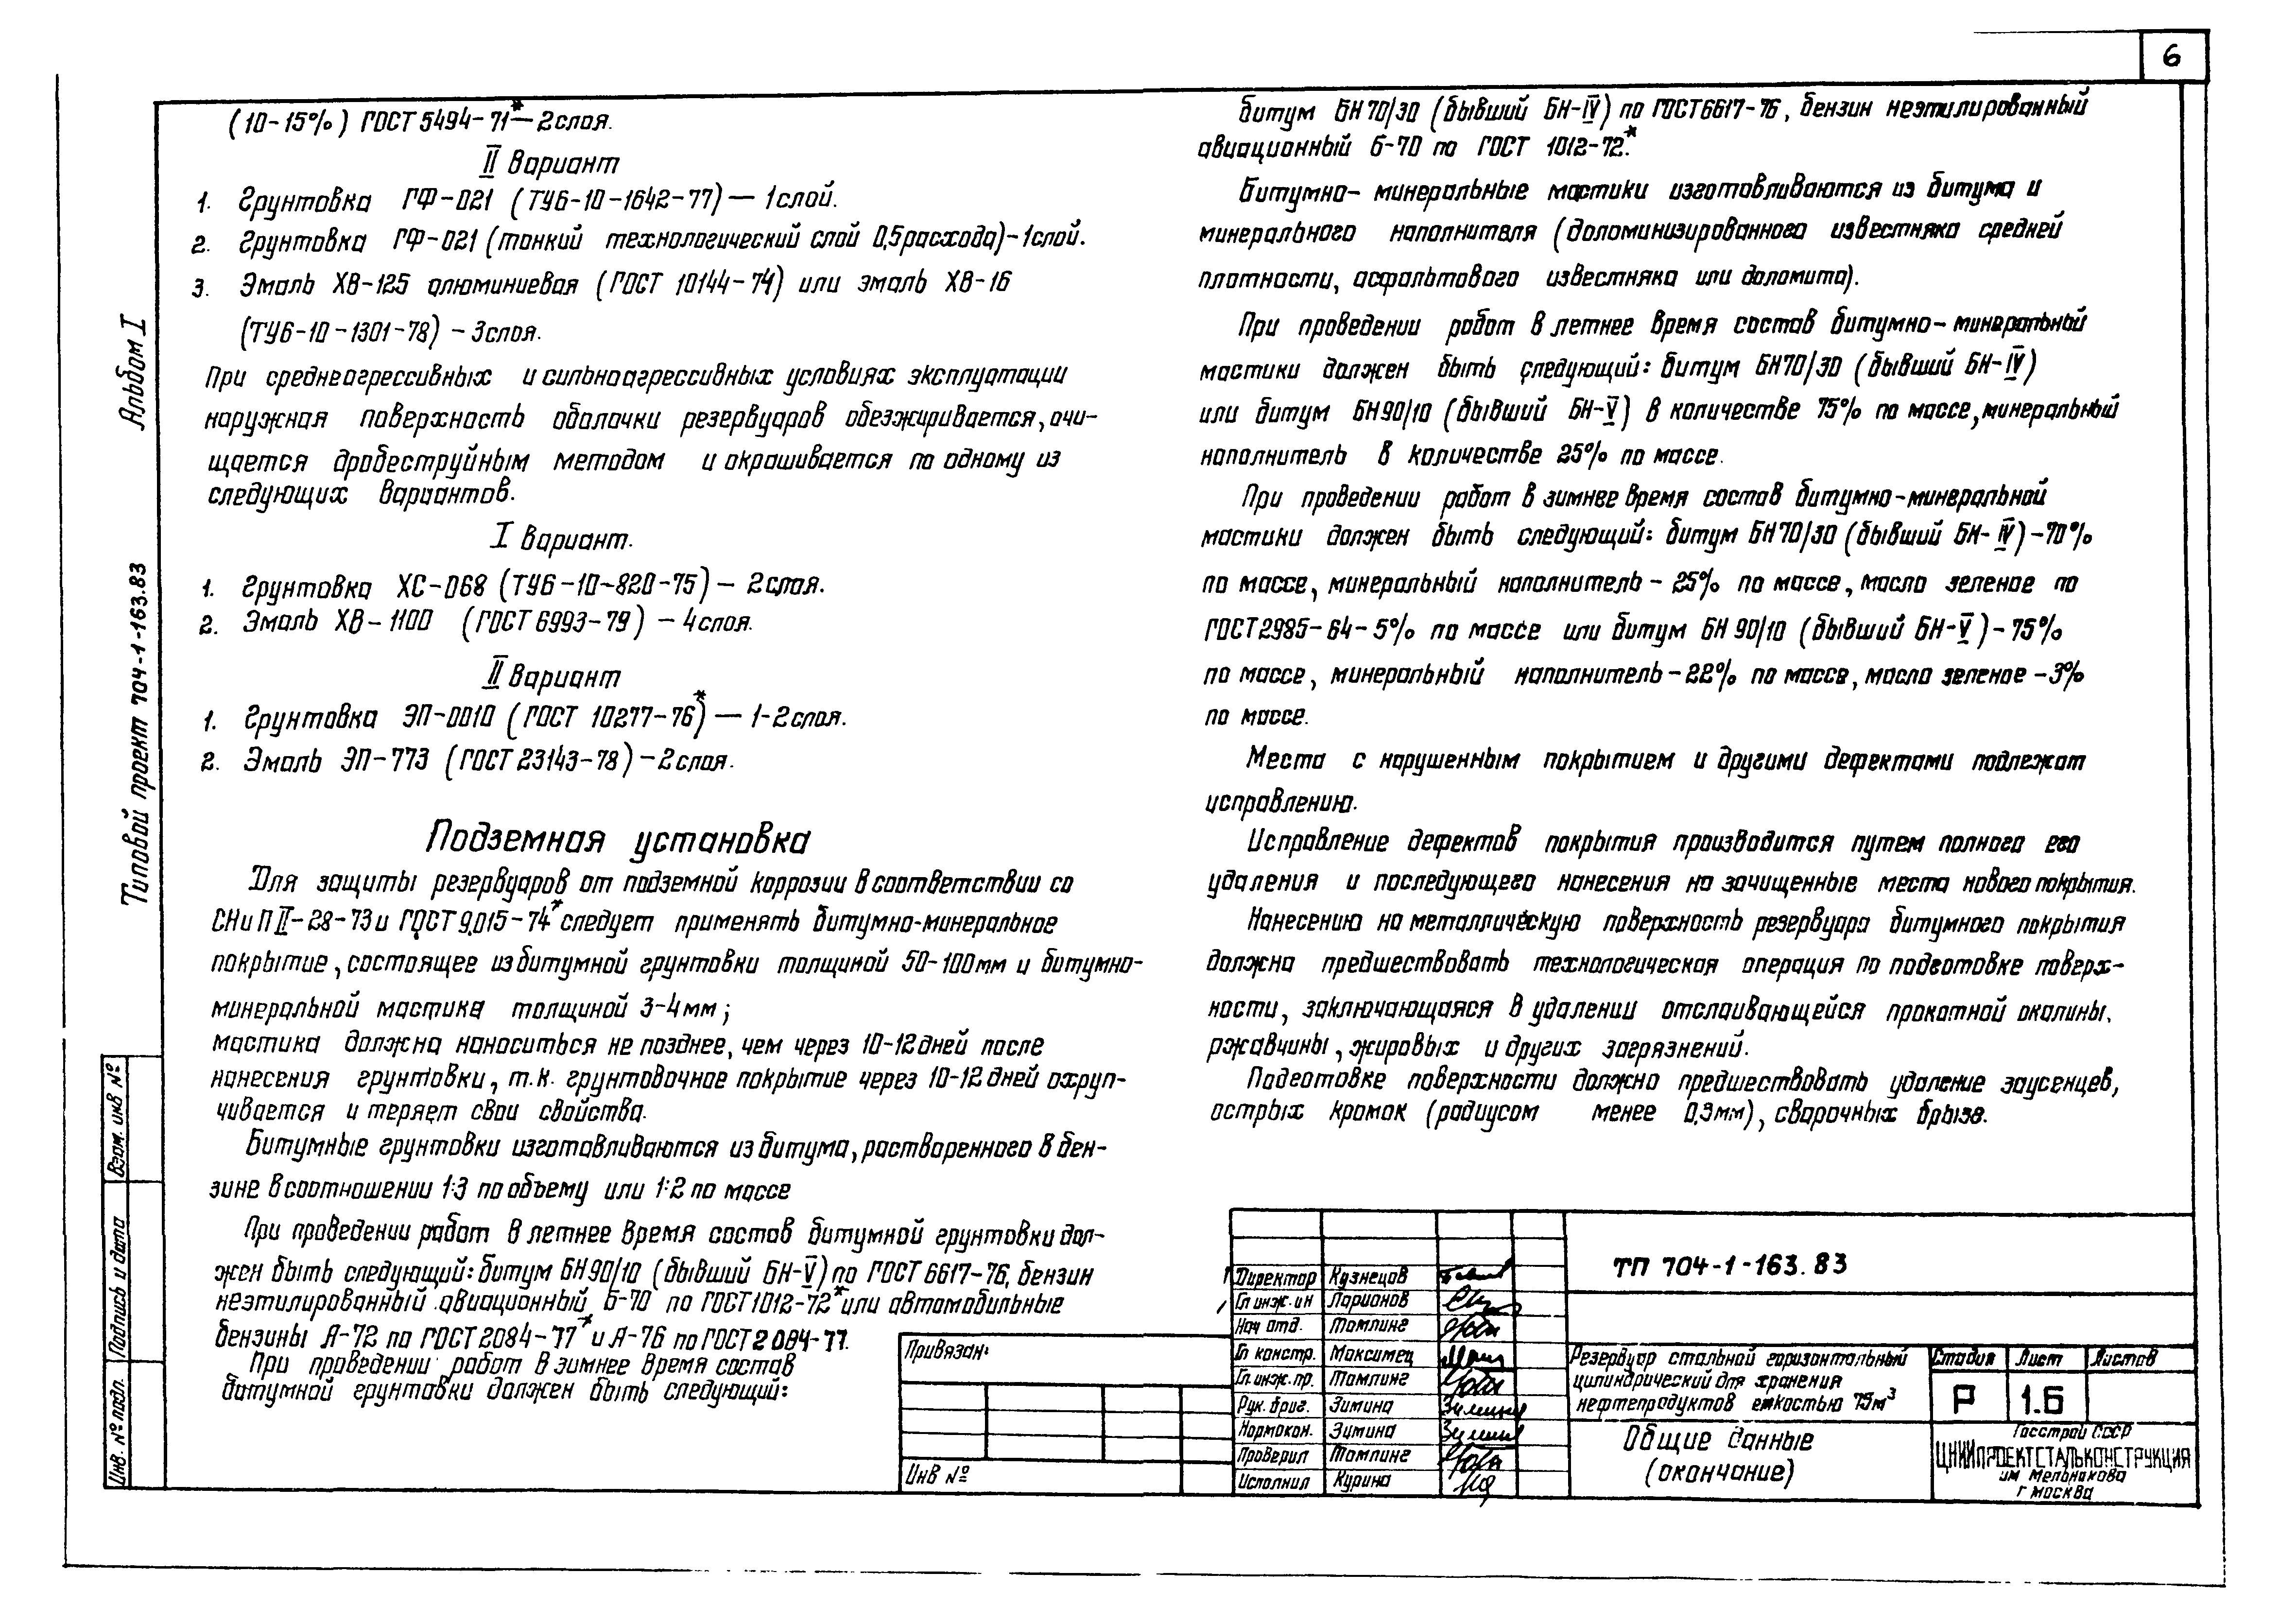 6
(10-15%) ГОСТ 5494-71* — 2 слоя.
II Вариант
1. Грунтовка ГФ-021 (ТУ6-10-1642-77) — 1 слой.
2. Грунтовка ГФ-021 (тонкий технологический слой 0,5 расхода) - 1 слой.
3. Эмаль ХВ-125 алюминиевая (ГОСТ 10144-74) или эмаль ХВ-16
(ТУ6-10-1301-78) - 3 слоя.
При среднеагрессивных и сильноагрессивных условиях эксплуатации
наружная поверхность оболочки резервуаров обезжиривается, очи-
щается дробеструйным методом и окрашивается по одному из
следующих вариантов.
I Вариант.
1. Грунтовка ХС-068 (ТУ6-10-820-75) - 2 слоя.
2. Эмаль ХВ-1100 (ГОСТ 6993-79) - 4 слоя.
II Вариант
1. Грунтовка ЭП-0010 (ГОСТ 10277-76*) — 1-2 слоя.
2. Эмаль ЭП-773 (ГОСТ 23143-78) - 2 слоя.
Подземная установка
Для защиты резервуаров от подземной коррозии в соответствии со
СНиП II-28-73 и ГОСТ 9.015-74* следует применять битумно-минеральное
покрытие, состоящее из битумной грунтовки толщиной 50-100 мм и битумно-
минеральной мастика толщиной 3-4 мм;
мастика должна наноситься не позднее, чем через 10-12 дней после
нанесения грунтовки, т.к. грунтовочное покрытие через 10-12 дней охруп-
чивается и теряет свои свойства.
Битумные грунтовки изготавливаются из битума, растворенного в бен-
зине в соотношении 1:3 по объему или 1:2 по массе
При проведении работ в летнее время состав битумной грунтовки дол-
жен быть следующий: битум БН 90/10 (бывший БН-V) по ГОСТ 6617-76, бензин
неэтилированный авиационный Б-70 по ГОСТ 1012-72* или автомобильные
бензины А-72 по ГОСТ 2084-77* и А-76 по ГОСТ 2084-77.
При проведении работ в зимнее время состав
битумной грунтовки должен быть следующий:
битум БН 70/30 (бывший БН-IV) по ГОСТ 6617-76, бензин неэтилированный
авиационный Б-70 по ГОСТ 1012-72*.
Битумно-минеральные мастики изготавливаются из битума и
минерального наполнителя (доломинизированного известняка средней
плотности, асфальтового известняка или доломита).
При проведении работ в летнее время состав битумно-минеральной
мастики должен быть следующий: битум БН 70/30 (бывший БН-IV)
или битум БН 90/10 (бывший БН-V) в количестве 75% по массе, минеральный
наполнитель в количестве 25% по массе.
При проведении работ в зимнее время состав битумно-минеральной
мастики должен быть следующий: битум БН 70/30 (бывший БН-IV) - 70%
по массе, минеральный наполнитель - 25% по массе, масло зеленое по
ГОСТ 2985-64 - 5% по массе или битум БН 90/10 (бывший БН-V) - 75%
по массе, минеральный наполнитель - 22% по массе, масло зеленое - 3%
по массе.
Места с нарушенным покрытием и другими дефектами подлежат
исправлению.
Исправление дефектов покрытия производится путем полного его
удаления и последующего нанесения на зачищенные места нового покрытия.
Нанесению на металлическую поверхность резервуара битумного покрытия
должна предшествовать технологическая операция по подготовке поверх-
ности, заключающаяся в удалении отслаивающейся прокатной окалины,
ржавчины, жировых и других загрязнений.
Подготовке поверхности должно предшествовать удаление заусенцев,
острых кромок (радиусом менее 0,3 мм), сварочных брызг.
Альбом I
Типовой проект 704-1-163.83
Взам. инв №
Подпись и дата
Инв. № подл.
Привязан:
Инв №
Директор Кузнецов
Гл инж. ин Ларионов
Нач отд. Томлинг
Гл констр. Максимец
Гл. инж. пр. Томлинг
Рук. бриг. Зимина
Нормокон. Зимина
Проверил Томлинг
Исполнил Курина
ТП 704-1-163.83
Резервуар стальной горизонтальный
цилиндрический для хранения
нефтепродуктов емкостью 75 м³
Стадия Лист Листов
Р 1.6
Общие данные
(окончание)
Госстрой СССР
ЦНИИПРОЕКТСТАЛЬКОНСТРУКЦИЯ
им Мельникова
г Москва